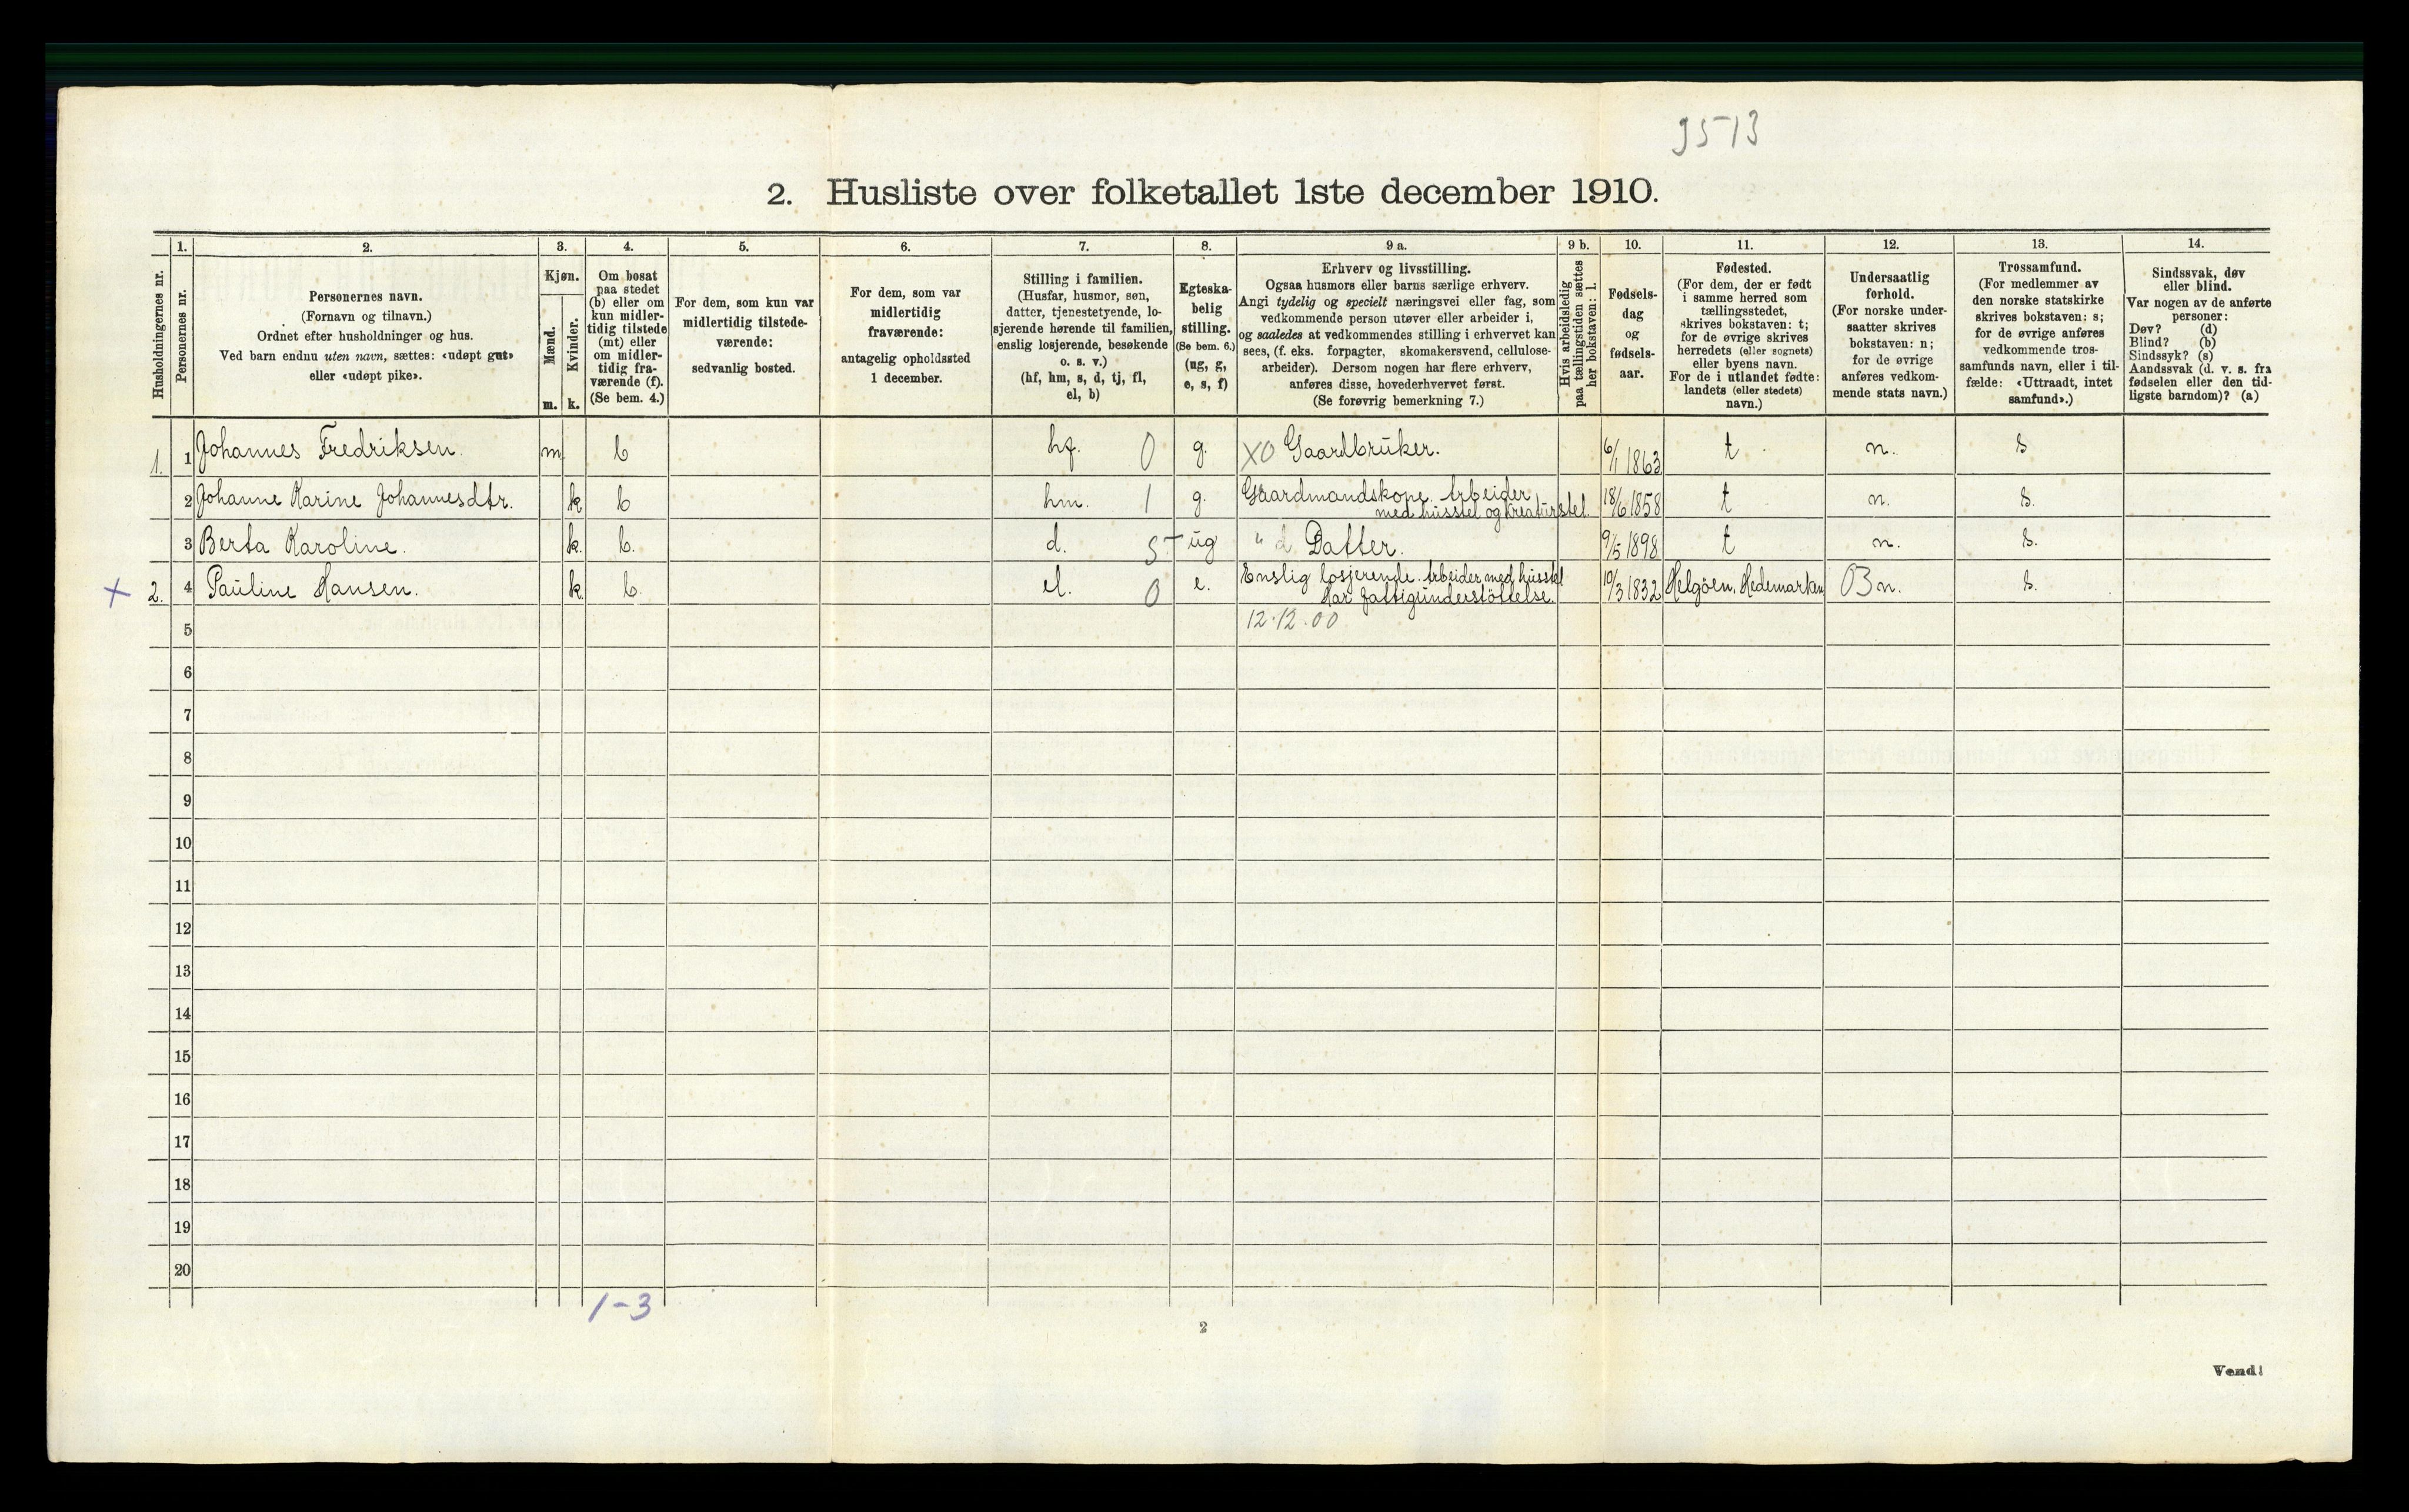 3513
2. Husliste over folketallet 1ste december 1910.
Husholdningernes nr.
1.
Personernes nr.
2.
Personernes navn.
(Fornavn og tilnavn.)
Ordnet efter husholdninger og hus.
Ved barn endnu uten navn, sættes: «udøpt gut»
eller «udøpt pike».
3.
Kjøn.
Mænd.
m.
Kvinder.
k.
4.
Om bosat
paa stedet
(b) eller om
kun midler-
tidig tilstede
(mt) eller
om midler-
tidig fra-
værende (f).
(Se bem. 4.)
5.
For dem, som kun var
midlertidig tilstede-
værende:
sedvanlig bosted.
6.
For dem, som var
midlertidig
fraværende:
antagelig opholdssted
1 december.
7.
Stilling i familien.
(Husfar, husmor, søn,
datter, tjenestetyende, lo-
sjerende hørende til familien,
enslig losjerende, besøkende
o. s. v.)
(hf, hm, s, d, tj, fl,
el, b)
8.
Egteska-
belig
stilling.
(Se bem. 6.)
(ug, g,
e, s, f)
9 a.
Erhverv og livsstilling.
Ogsaa husmors eller barns særlige erhverv.
Angi tydelig og specielt næringsvei eller fag, som
vedkommende person utøver eller arbeider i,
og saaledes at vedkommendes stilling i erhvervet kan
sees, (f. eks. forpagter, skomakersvend, cellulose-
arbeider). Dersom nogen har flere erhverv,
anføres disse, hovederhvervet først.
(Se forøvrig bemerkning 7.)
9 b.
Hvis arbeidsledig
paa tællingstiden sættes
her bokstaven: l.
10.
Fødsels-
dag
og
fødsels-
aar.
11.
Fødested.
(For dem, der er født
i samme herred som
tællingsstedet,
skrives bokstaven: t;
for de øvrige skrives
herredets (eller sognets)
eller byens navn.
For de i utlandet fødte:
landets (eller stedets)
navn.)
12.
Undersaatlig
forhold.
(For norske under-
saatter skrives
bokstaven: n;
for de øvrige
anføres vedkom-
mende stats navn.)
13.
Trossamfund.
(For medlemmer av
den norske statskirke
skrives bokstaven: s;
for de øvrige anføres
vedkommende tros-
samfunds navn, eller i til-
fælde: «Uttraadt, intet
samfund».)
14.
Sindssvak, døv
eller blind.
Var nogen av de anførte
personer:
Døv? (d)
Blind? (b)
Sindssyk? (s)
Aandssvak (d. v. s. fra
fødselen eller den tid-
ligste barndom)? (a)
1. 1 Johannes Fredriksen. m b hf. 0 g. XO Gaardbruker. 6/1 1863 t n. s
2 Johanne Karine Johannesdtr. k b hm. 1 g. Gaardmandskone. Arbeider
med husstel og kreaturstel. 18/6 1858 t n. s.
3 Berta Karoline. k. b. d. 5 ug " d Datter. 9/5 1898 t n. s.
+ 2. 4 Pauline Hansen. k b. el. 0 e. Enslig losjerende. Arbeider med husstel
Har fattigunderstöttelse. 10/3 1832 Helgöen, Hedemarken 03 n. s.
5 12.12.00
6
7
8
9
10
11
12
13
14
15
16
17
18
19
20
1-3
2
Vend!